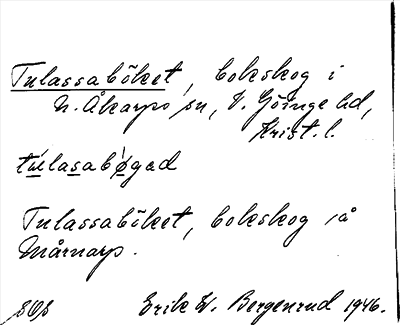 Tulassaböket, bokskog i
N. Åkarps sn, V. Göinge hd,
Krist. l.
tulasabøgad
Tulassaböket, bokskog på
Mårnarp.
Erik W. Bergenrud 1946.